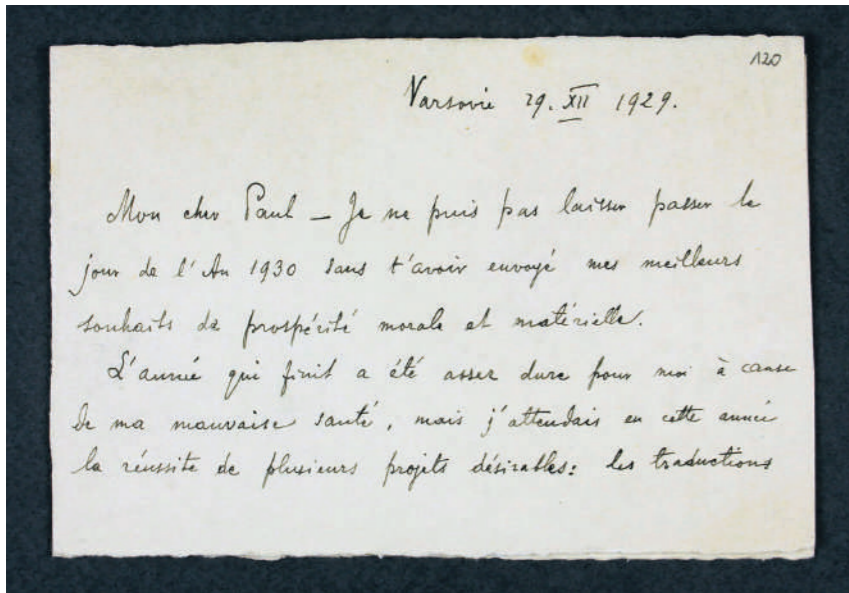 120
Varsovie 29. XII 1929.
Mon cher Paul – Je ne puis pas laisser passer le
jour de l'An 1930 sans t'avoir envoyé mes meilleurs
souhaits de prospérité morale et matérielle.
L'année qui finit a été assez dure pour moi à cause
de ma mauvaise santé, mais j'attendais en cette année
la réussite de plusieurs projets désirables: les traductions